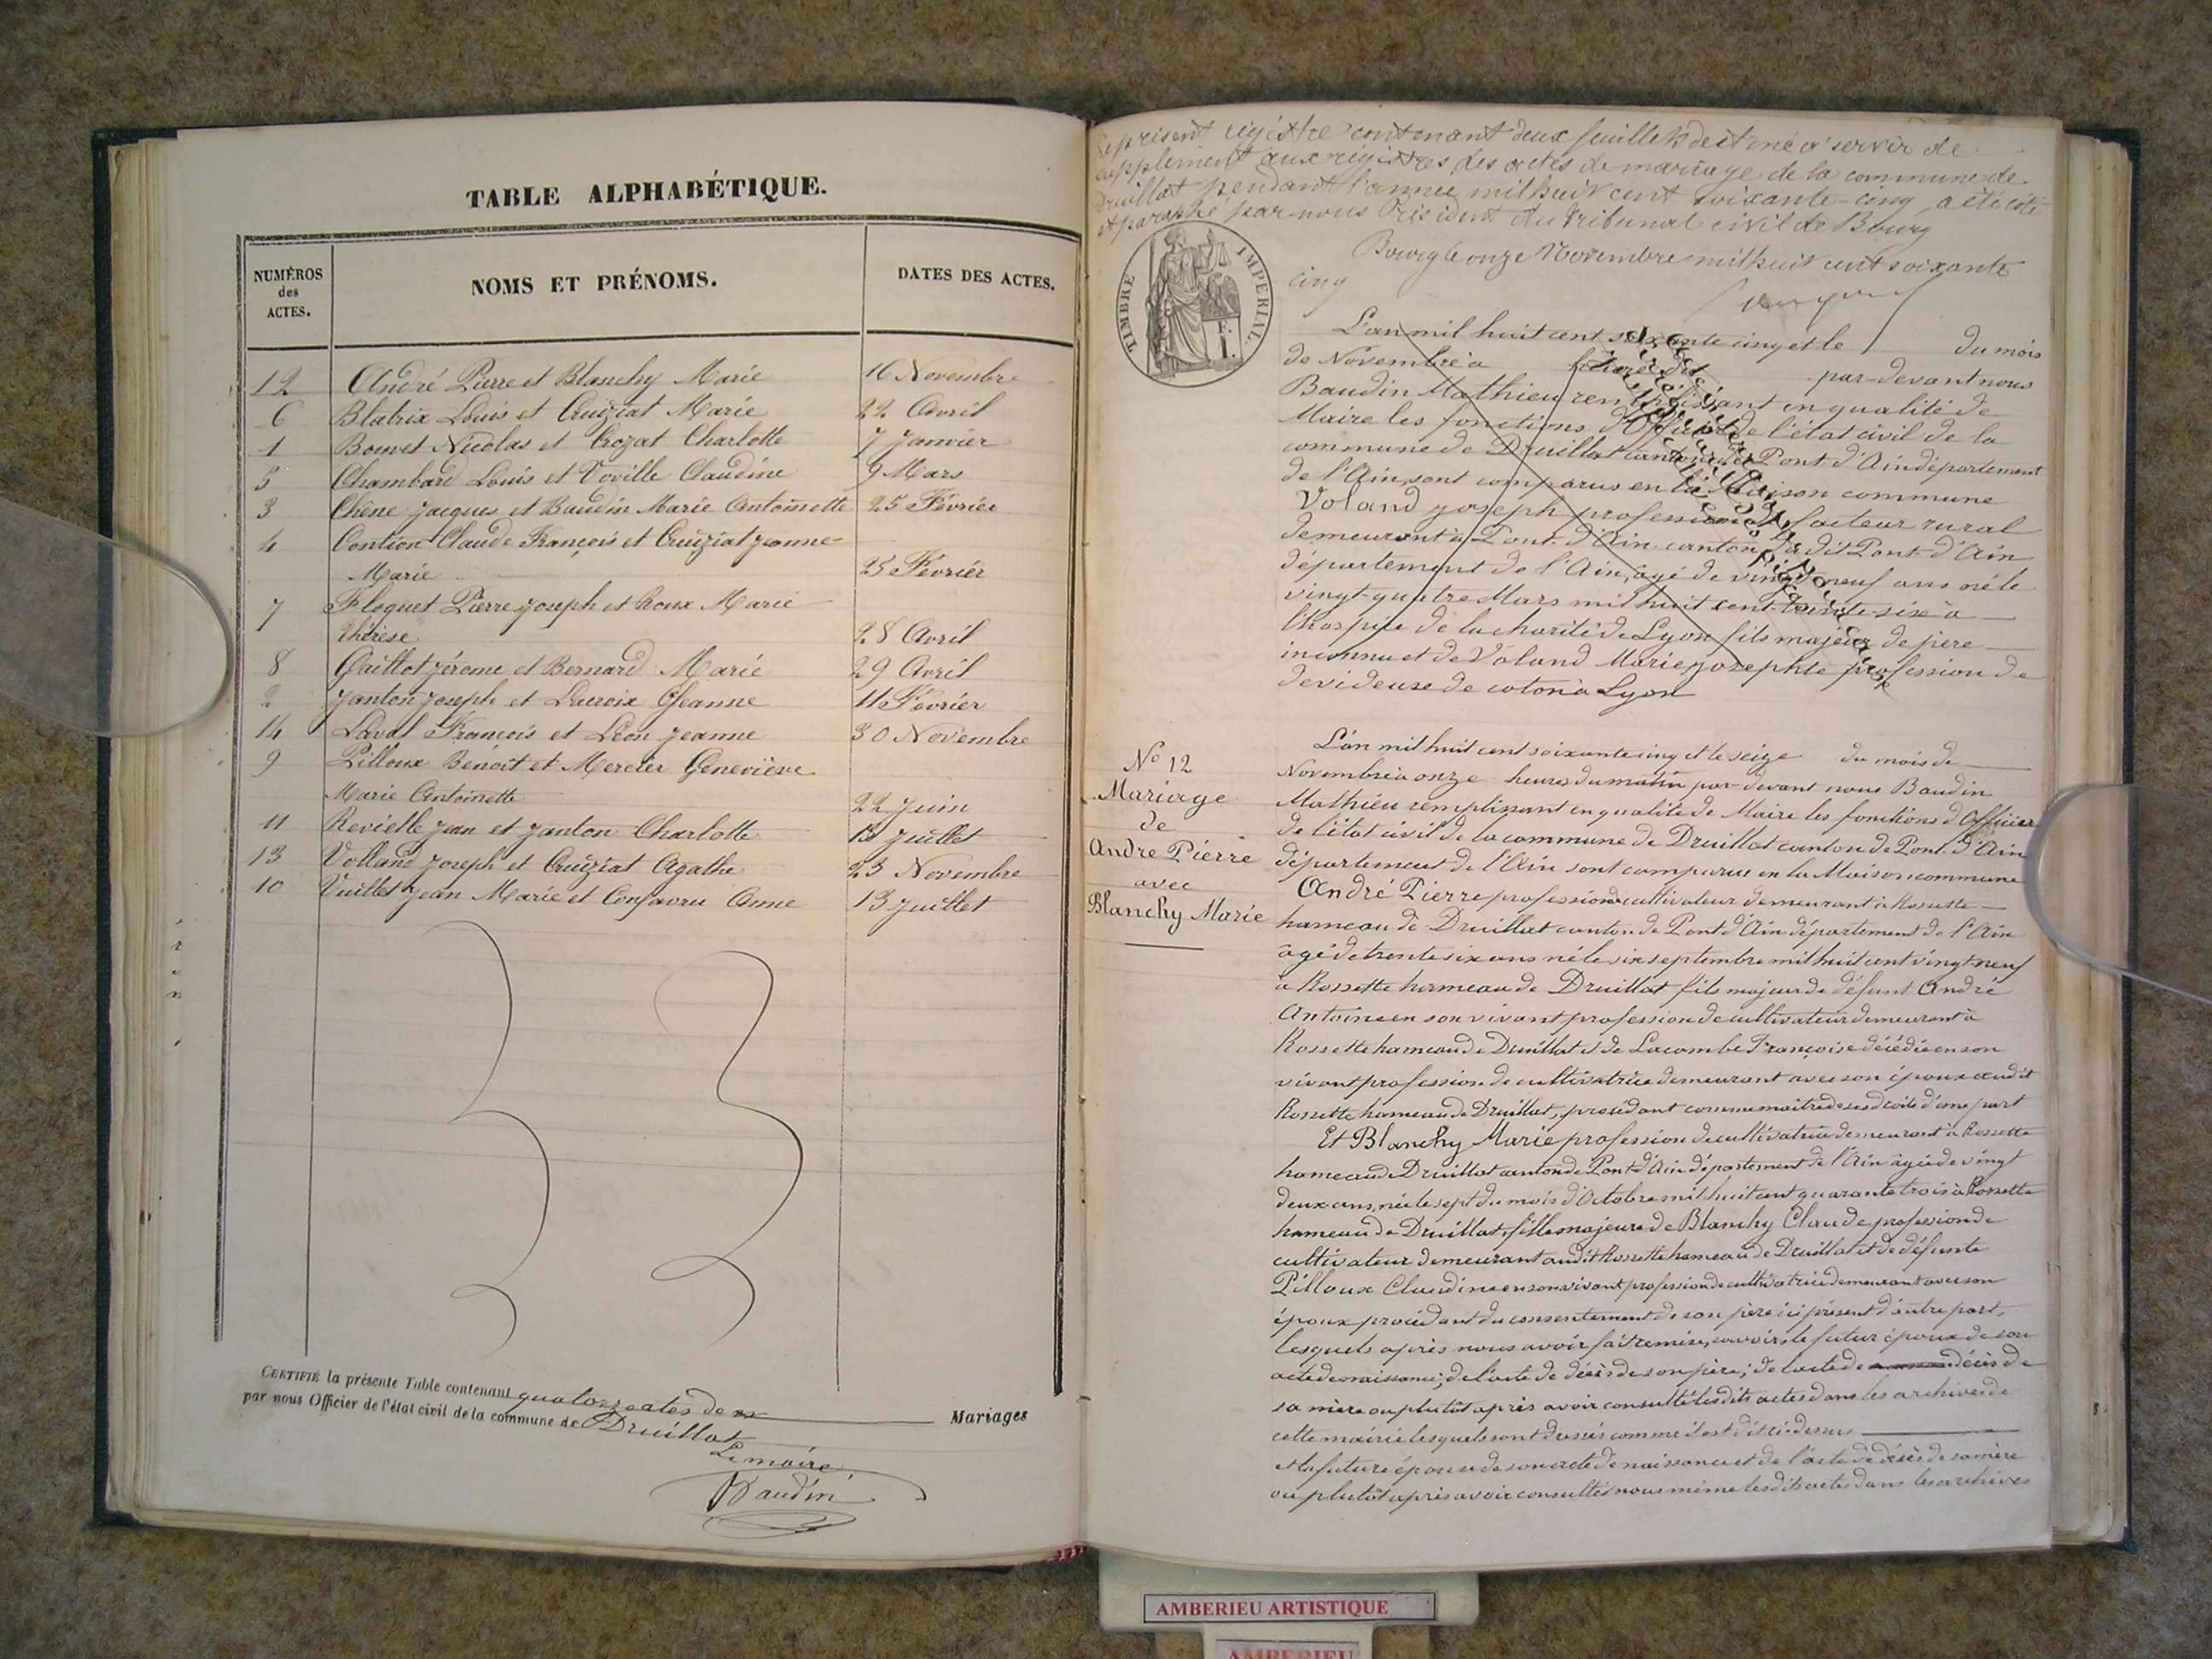 TABLE ALPHABÉTIQUE.
NUMÉROS des ACTES. NOMS ET PRÉNOMS. DATES DES ACTES.
12 André Pierre et Blanchy Marie 16 Novembre
6 Blatrix Louis et Cruiziat Marie 22 Avril
1 Bouvet Nicolas et Crozat Charlotte 7 Janvier
5 Chambard Louis et Voville Claudine 9 Mars
3 Chêne Jacques et Baudin Marie Antoinette 25 Février
4 Contion Claude François et Cruiziat Jeanne
Marie 25 Février
7 Floquet Pierre Joseph et Roux Marie
Thérèse 28 Avril
8 Gaillot Jérome et Bernard Marie 29 Avril
2 Janton Joseph et Lacroix Jeanne 11 Février
14 Laval François et Léon Jeanne 30 Novembre
9 Pilloux Benoit et Mercier Geneviève
Marie Antoinette 22 Juin
11 Revielle Jean et Janton Charlotte 13 Juillet
13 Volland Joseph et Cruiziat Agathe 23 Novembre
10 Vuillet Jean Marie et Confavreu Anne 13 Juillet
CERTIFIÉ la présente Table contenant quatorze actes de Mariages
par nous Officier de l'état civil de la commune de Druillat
Le maire
Baudin
Le présent régistre contenant deux feuillets destiné à servir de
supplément aux régistres des actes de mariage de la commune de
Druillat pendant l'année mil huit cent soixante-cinq, a été côté
et paraphé par nous Président du tribunal civil de Bourg
Bourg le onze Novembre mil huit cent soixante
cinq
TIMBRE IMPÉRIAL.
L'an mil huit cent soixante cinq et le du mois
de Novembre à heures du par-devant nous
Baudin Mathieu remplissant en qualité de
Maire les fonctions d'Officier de l'état civil de la
commune de Druillat canton de Pont-d'Ain département
de l'Ain, sont comparus en la Maison commune
Voland Joseph profession de facteur rural
demeurant à Pont-d'Ain canton du dit Pont-d'Ain
département de l'Ain, âgé de vingt-neuf ans né le
vingt-quatre Mars mil huit cent trente-six à
l'hospice de la charité de Lyon fils majeur de père
inconnu et de Voland Marie Josephte profession de
devideuse de coton à Lyon
No 12
Mariage
de
André Pierre
avec
Blanchy Marie
L'an mil huit cent soixante cinq et le seize du mois de
Novembre à onze heures du matin par-devant nous Baudin
Mathieu remplissant en qualité de Maire les fonctions d'Officier
de l'état civil de la commune de Druillat canton de Pont-d'Ain
département de l'Ain sont comparus en la Maison commune
André Pierre profession de cultivateur demeurant à Rossette
hameau de Druillat canton de Pont-d'Ain département de l'Ain
âgé de trente six ans né le six septembre mil huit cent vingt-neuf
à Rossette hameau de Druillat fils majeur de défunt André
Antoine en son vivant profession de cultivateur demeurant à
Rossette hameau de Druillat et de Lacombe Françoise décédée en son
vivant profession de cultivatrice demeurant avec son époux audit
Rossette hameau de Druillat, procédant comme maître de ses droits d'une part
Et Blanchy Marie profession de cultivatrice demeurant à Rossette
hameau de Druillat canton de Pont-d'Ain département de l'Ain âgée de vingt
deux ans, née le sept du mois d'Octobre mil huit cent quarante trois à Rossette
hameau de Druillat, fille majeure de Blanchy Claude profession de
cultivateur demeurant audit Rossette hameau de Druillat et de défunte
Pilloux Claudine en son vivant profession de cultivatrice demeurant avec son
époux procédant du consentement de son père ici présent d'autre part,
lesquels après nous avoir fait remise, savoir, le futur époux de son
acte de naissance; de l'acte de décès de son père; de l'acte de décès de
sa mère ou plutôt après avoir consulté les dits actes dans les archives de
cette mairie lesquels sont dressés comme il est dit ci-dessus
et la future épouse de son acte de naissance et de l'acte de décès de sa mère
ou plutôt après avoir consultés nous même les dits actes dans les archives
AMBERIEU ARTISTIQUE
AMBERIEU